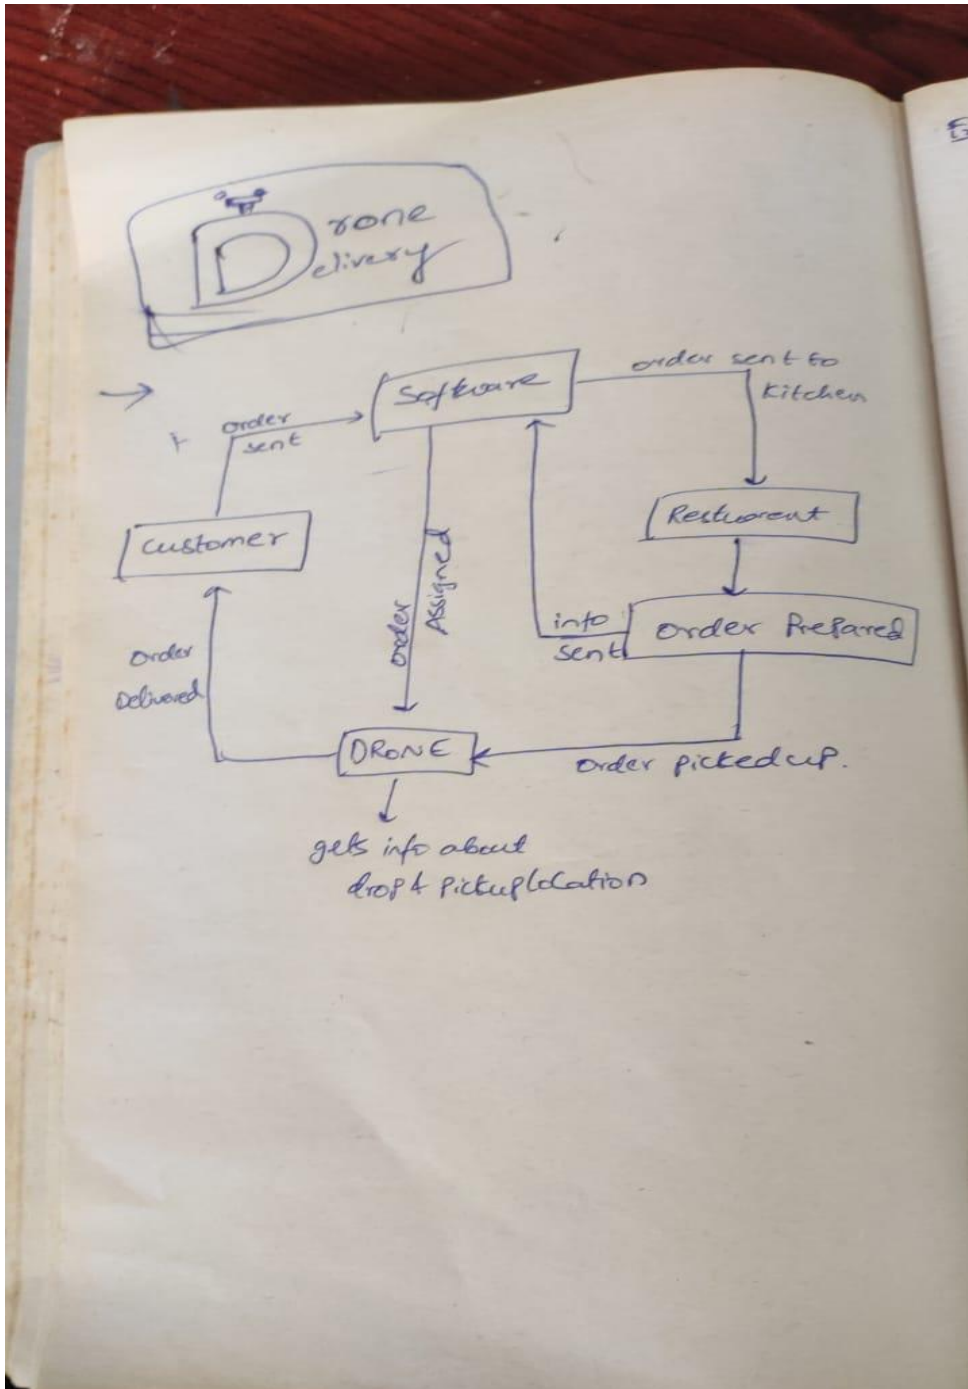 Drone
Delivery
Software
order sent to
Kitchen
order
sent
Restuarent
Customer
order
Assigned
info
sent
Order Prepared
order
Delivered
DRONE
order picked up.
gets info about
drop & pickup location